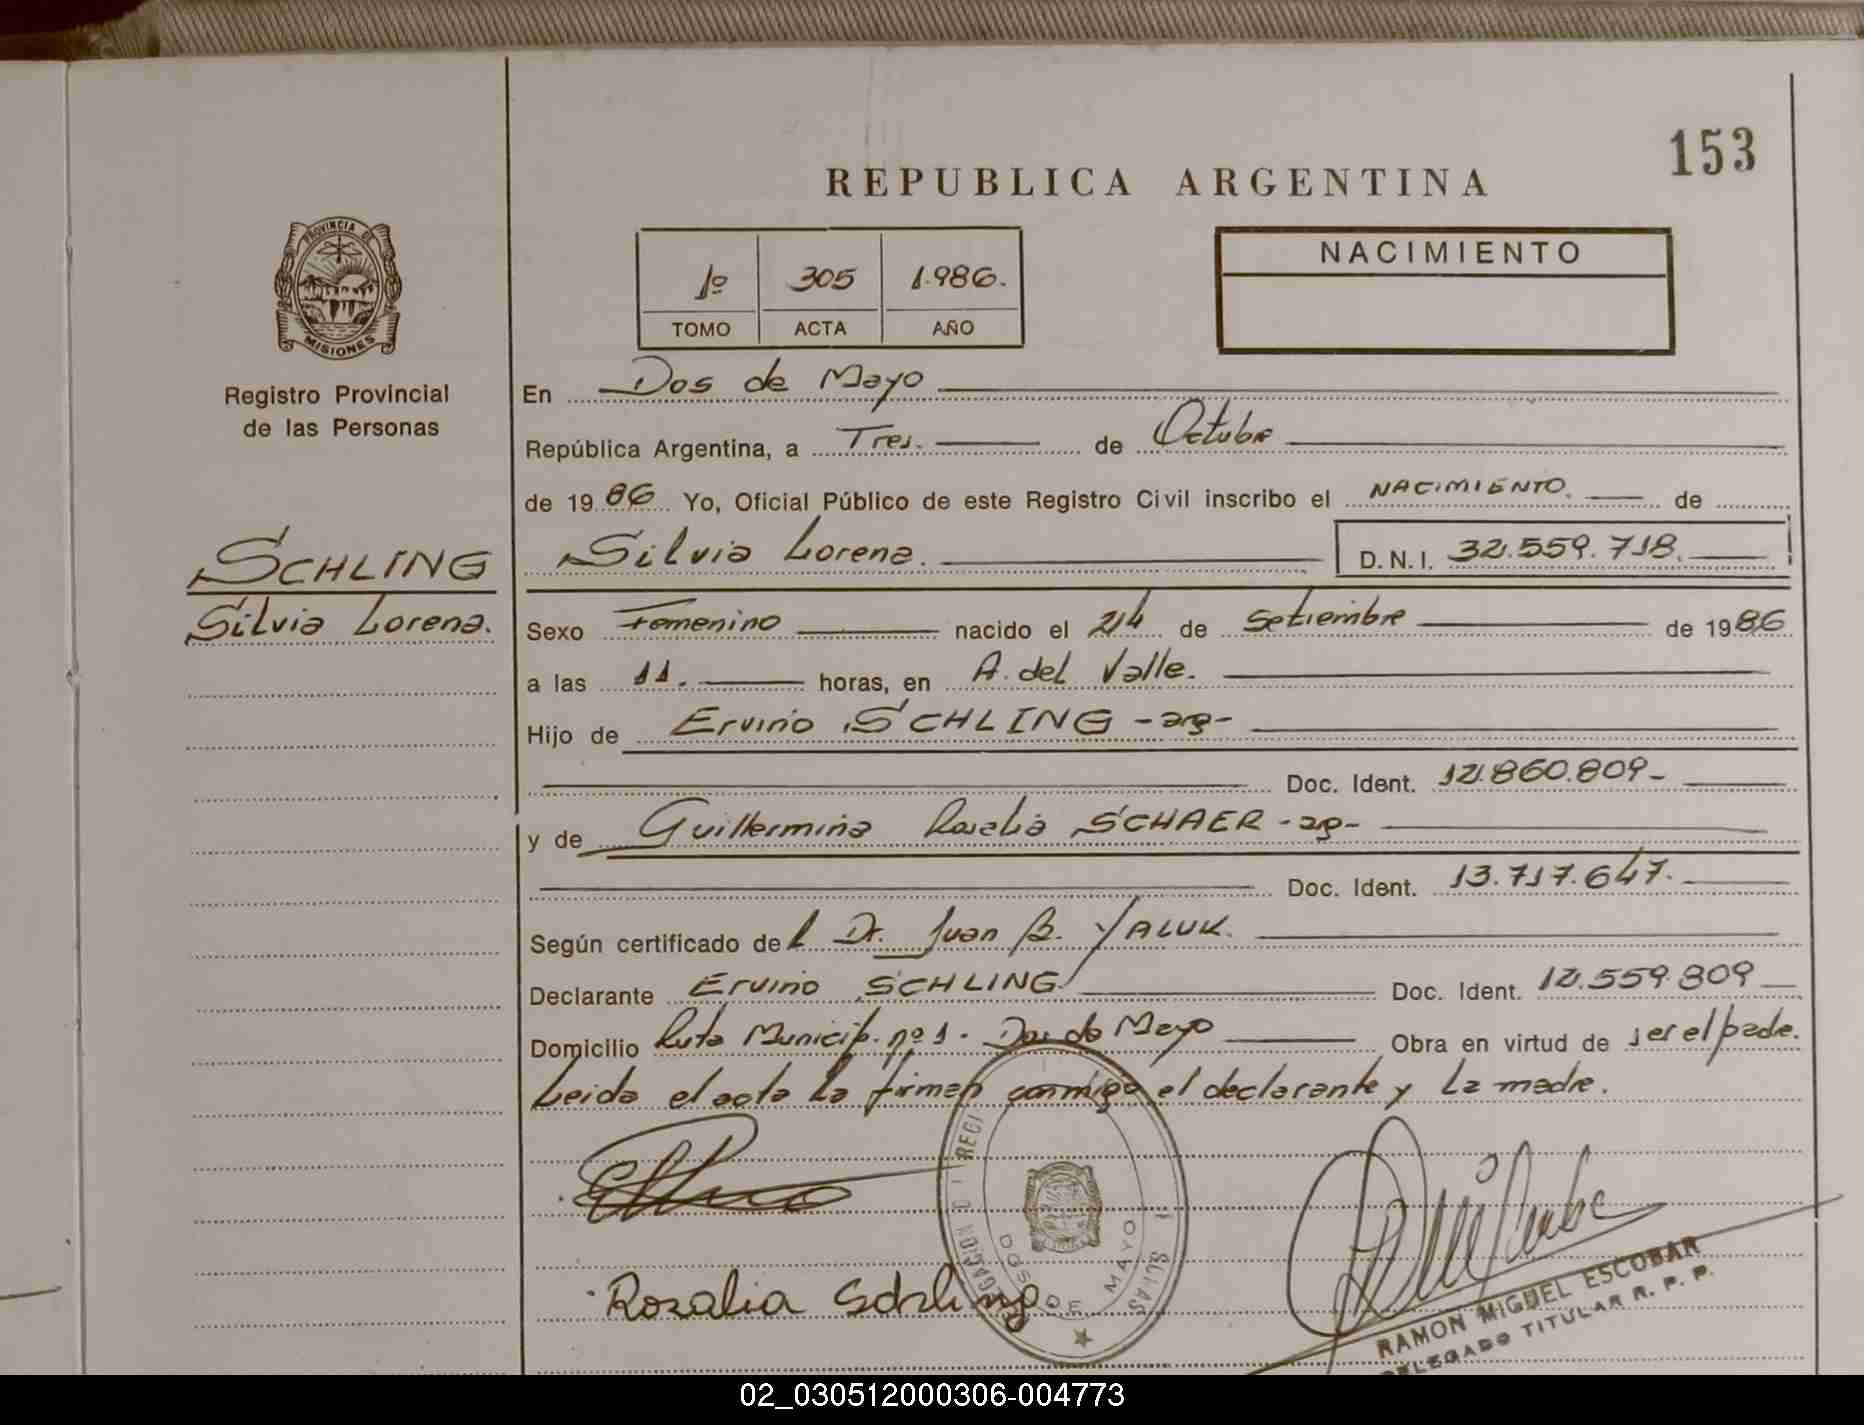 153
REPUBLICA ARGENTINA
PROVINCIA DE
MISIONES
Registro Provincial
de las Personas
1º 305 1.986.
TOMO ACTA AÑO
NACIMIENTO
En Dos de Mayo
República Argentina, a Tres. de Octubre
de 1986 Yo, Oficial Público de este Registro Civil inscribo el NACIMIENTO. de
SCHLING
Silvia Lorena.
Silvia Lorena. D.N.I. 32.559.718.
Sexo Femenino nacido el 24 de setiembre de 1986
a las 11. horas, en A. del Valle.
Hijo de Ervino SCHLING -arg-
Doc. Ident. 12.860.809-
y de Guillermina Rosalia SCHAER -arg-
Doc. Ident. 13.717.647.
Según certificado del Dr. Juan B. YALUK.
Declarante Ervino SCHLING Doc. Ident. 12.559.809
Domicilio Ruta Municip. nº 1. Dos de Mayo Obra en virtud de ser el padre.
Leida el acta la firman conmigo el declarante y la madre.
DOS DE MAYO
Rozalia Schling
RAMON MIGUEL ESCOBAR
DELEGADO TITULAR R. P. P.
02_030512000306-004773